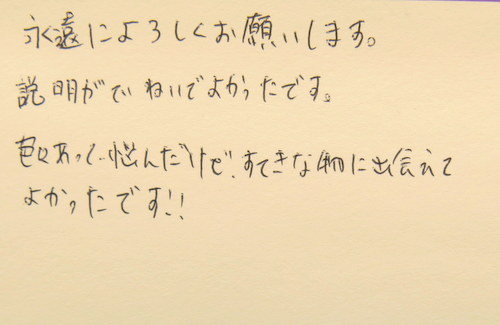 永遠によろしくお願いします。
説明がていねいでよかったです。
色々あって、悩んだけど、すてきな物に出会えて
よかったです!!